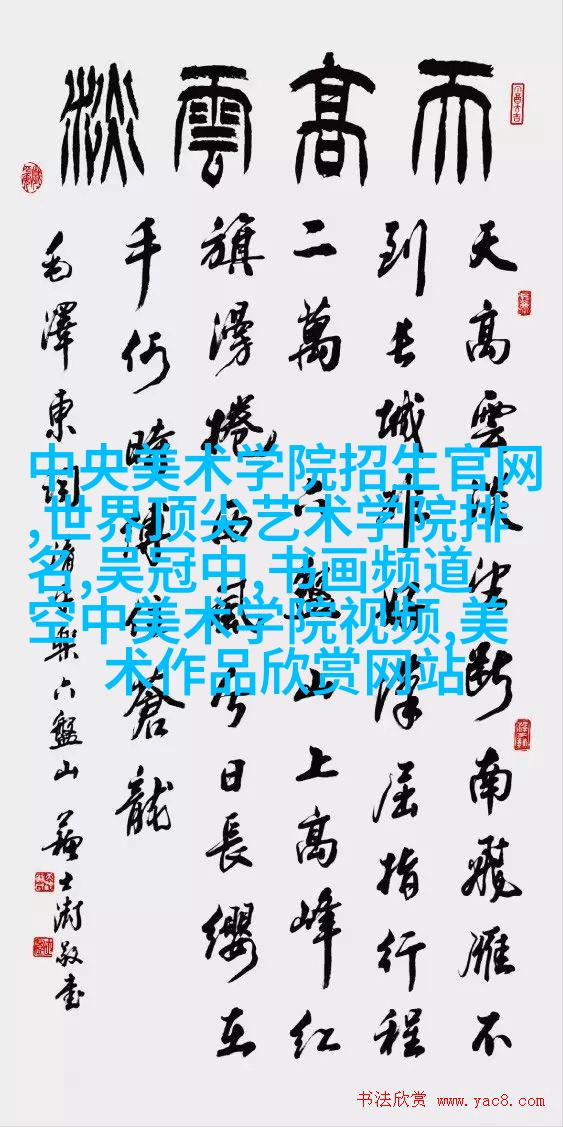 天高雲淡
天高雲淡望斷南飛雁不
到長城非好漢屈指行程
二萬六盤山上高峰紅
旗漫捲西風今日長纓在
手何時縛住蒼龍
毛澤東詞清平樂六盤山 蘇士澍敬書
中央美术学院招生官网
,世界顶尖艺术学院排
名,吴冠中,书画频道
空中美术学院视频,美
术作品欣赏网站
书法欣赏 www.yac8.com